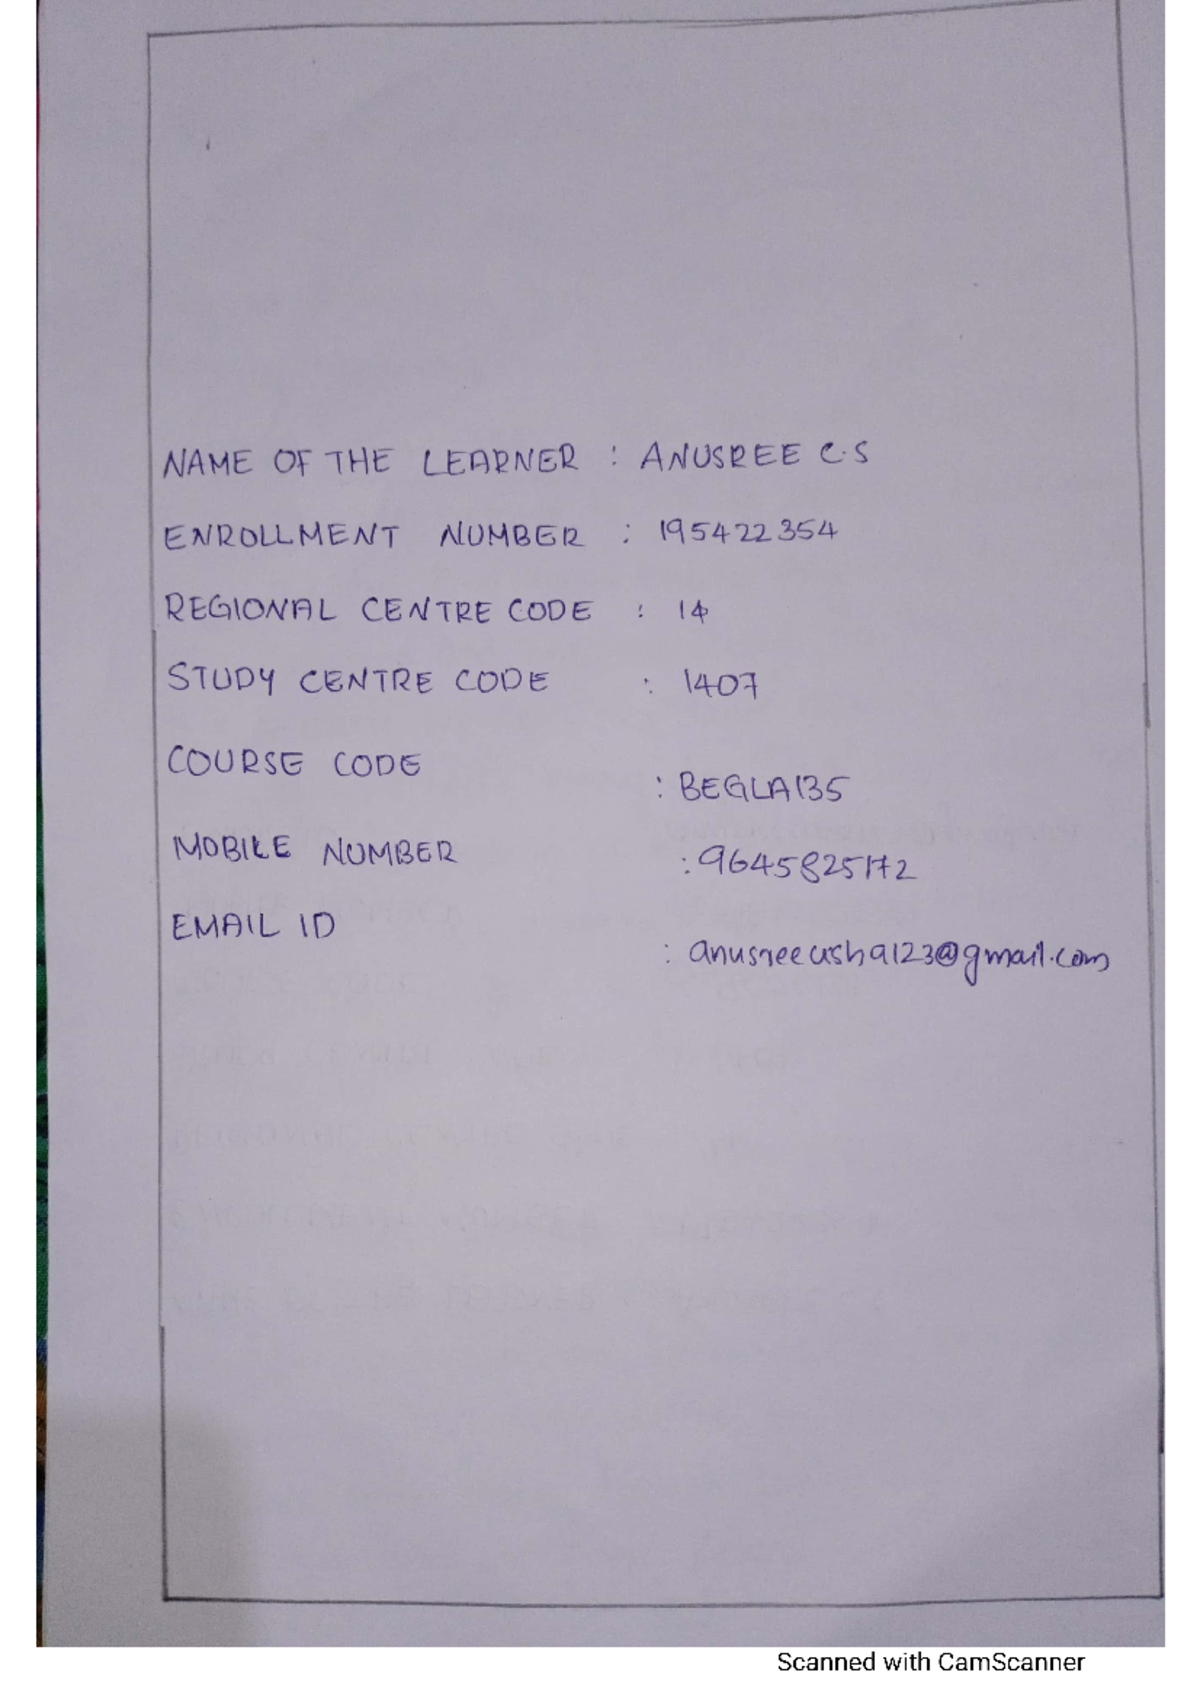 NAME OF THE LEARNER : ANUSREE C.S
ENROLLMENT NUMBER : 195422354
REGIONAL CENTRE CODE : 14
STUDY CENTRE CODE : 1407
COURSE CODE : BEGLA135
MOBILE NUMBER : 9645825172
EMAIL ID : anusreeusha123@gmail.com
Scanned with CamScanner